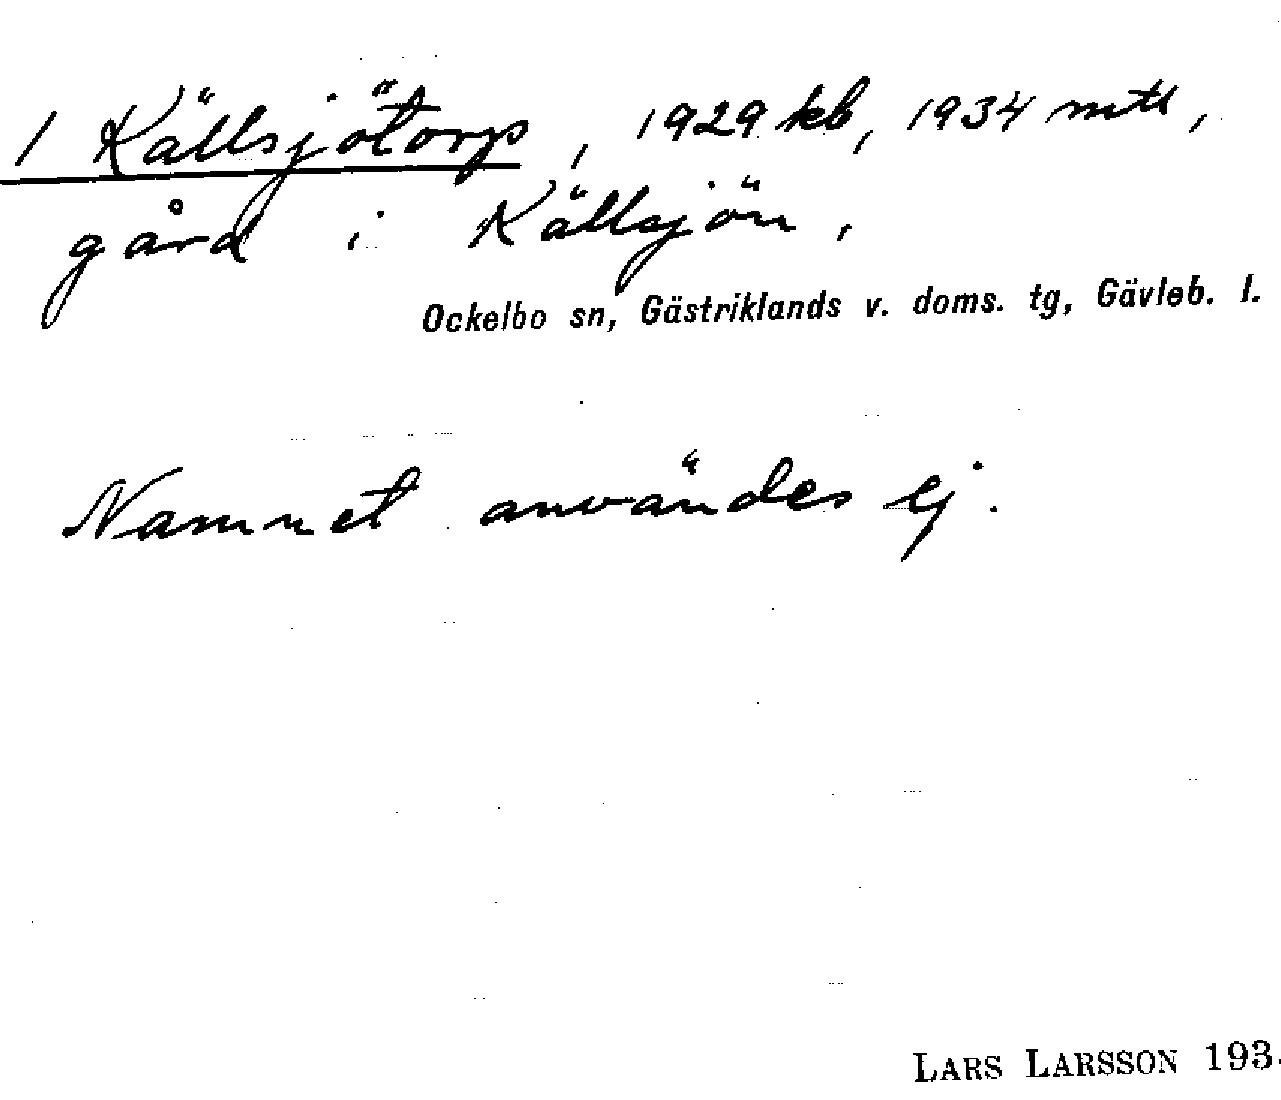 1 Källsjötorp, 1929 kb, 1934 mtl,
gård i Källsjön,
Ockelbo sn, Gästriklands v. doms. tg, Gävleb. l.
Namnet användes ej.
LARS LARSSON 193.